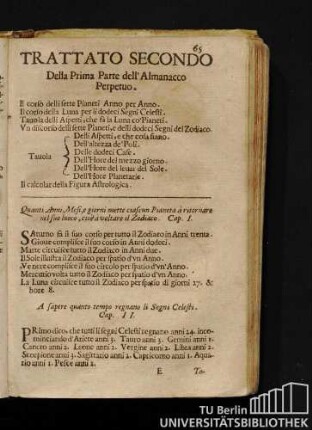 65
TRATTATO SECONDO
Della Prima Parte dell'Almanacco
Perpetuo.
Il corso delli sette Pianeti Anno per Anno.
Il corso della Luna per li dodeci Segni Celesti.
Tauola delli Aspetti, che fa la Luna co'Pianeti.
Vn discorso delli sette Pianeti, e delli dodeci Segni del Zodiaco.
Tauola
Delli Aspetti, e che cosa siano.
Dell'altezza de'Poli.
Delle dodeci Case.
Dell'Hore del mezzo giorno.
Dell'Hore del leuar del Sole.
Dell'Hore Planetarie.
Il calcular della Figura Astrologica.
Quanti Anni, Mesi, e giorni mette ciascun Pianeta a ritornare
nel suo luoco, cioè a voltare il Zodiaco. Cap. I.
SAturno fa il suo corso per tutto il Zodiaco in Anni trenta.
Gioue compisce il suo corso in Anni dodeci.
Marte circuisce tutto il Zodiaco in Anni due.
Il Sole illustra il Zodiaco per spatio d'vn Anno.
Venere compisce il suo circolo per spatio d'vn'Anno.
Mercurio volta tutto il Zodiaco per spatio d'vn'Anno.
La Luna circuisce tutto il Zodiaco per spatio di giorni 27. &
hore 8.
A sapere quanto tempo regnano li Segni Celesti.
Cap. II.
PRimo dico, che tutti li segni Celesti regnano anni 24. inco-
minciando d'Ariete anni 3. Tauro anni 3. Gemini anni 1.
Cancro anni 2. Leone anni 1. Vergine anni 2. Libra anni 2.
Scorpione anni 3. Sagittario anni 1. Capricorno anni 1. Aqua-
rio anni 2. Pesce anni 2.
E To-
TU Berlin
UNIVERSITÄTSBIBLIOTHEK